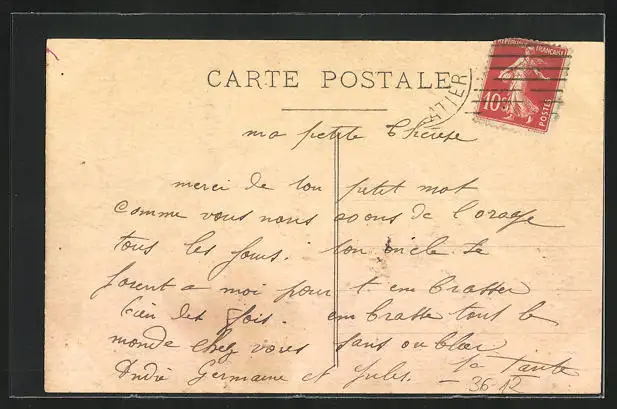 CARTE POSTALE
RÉPUBLIQUE FRANÇAISE
10c
POSTES
ATIER
ma petite Thérèse
merci de ton petit mot
comme vous nous avons de l'orage
tous les jours. ton oncle se
joient a moi pour t embrasser
bien des fois. embrasse tout le
monde chez vous sans oublier
André Germaine et Jules. ta Tante
36-12